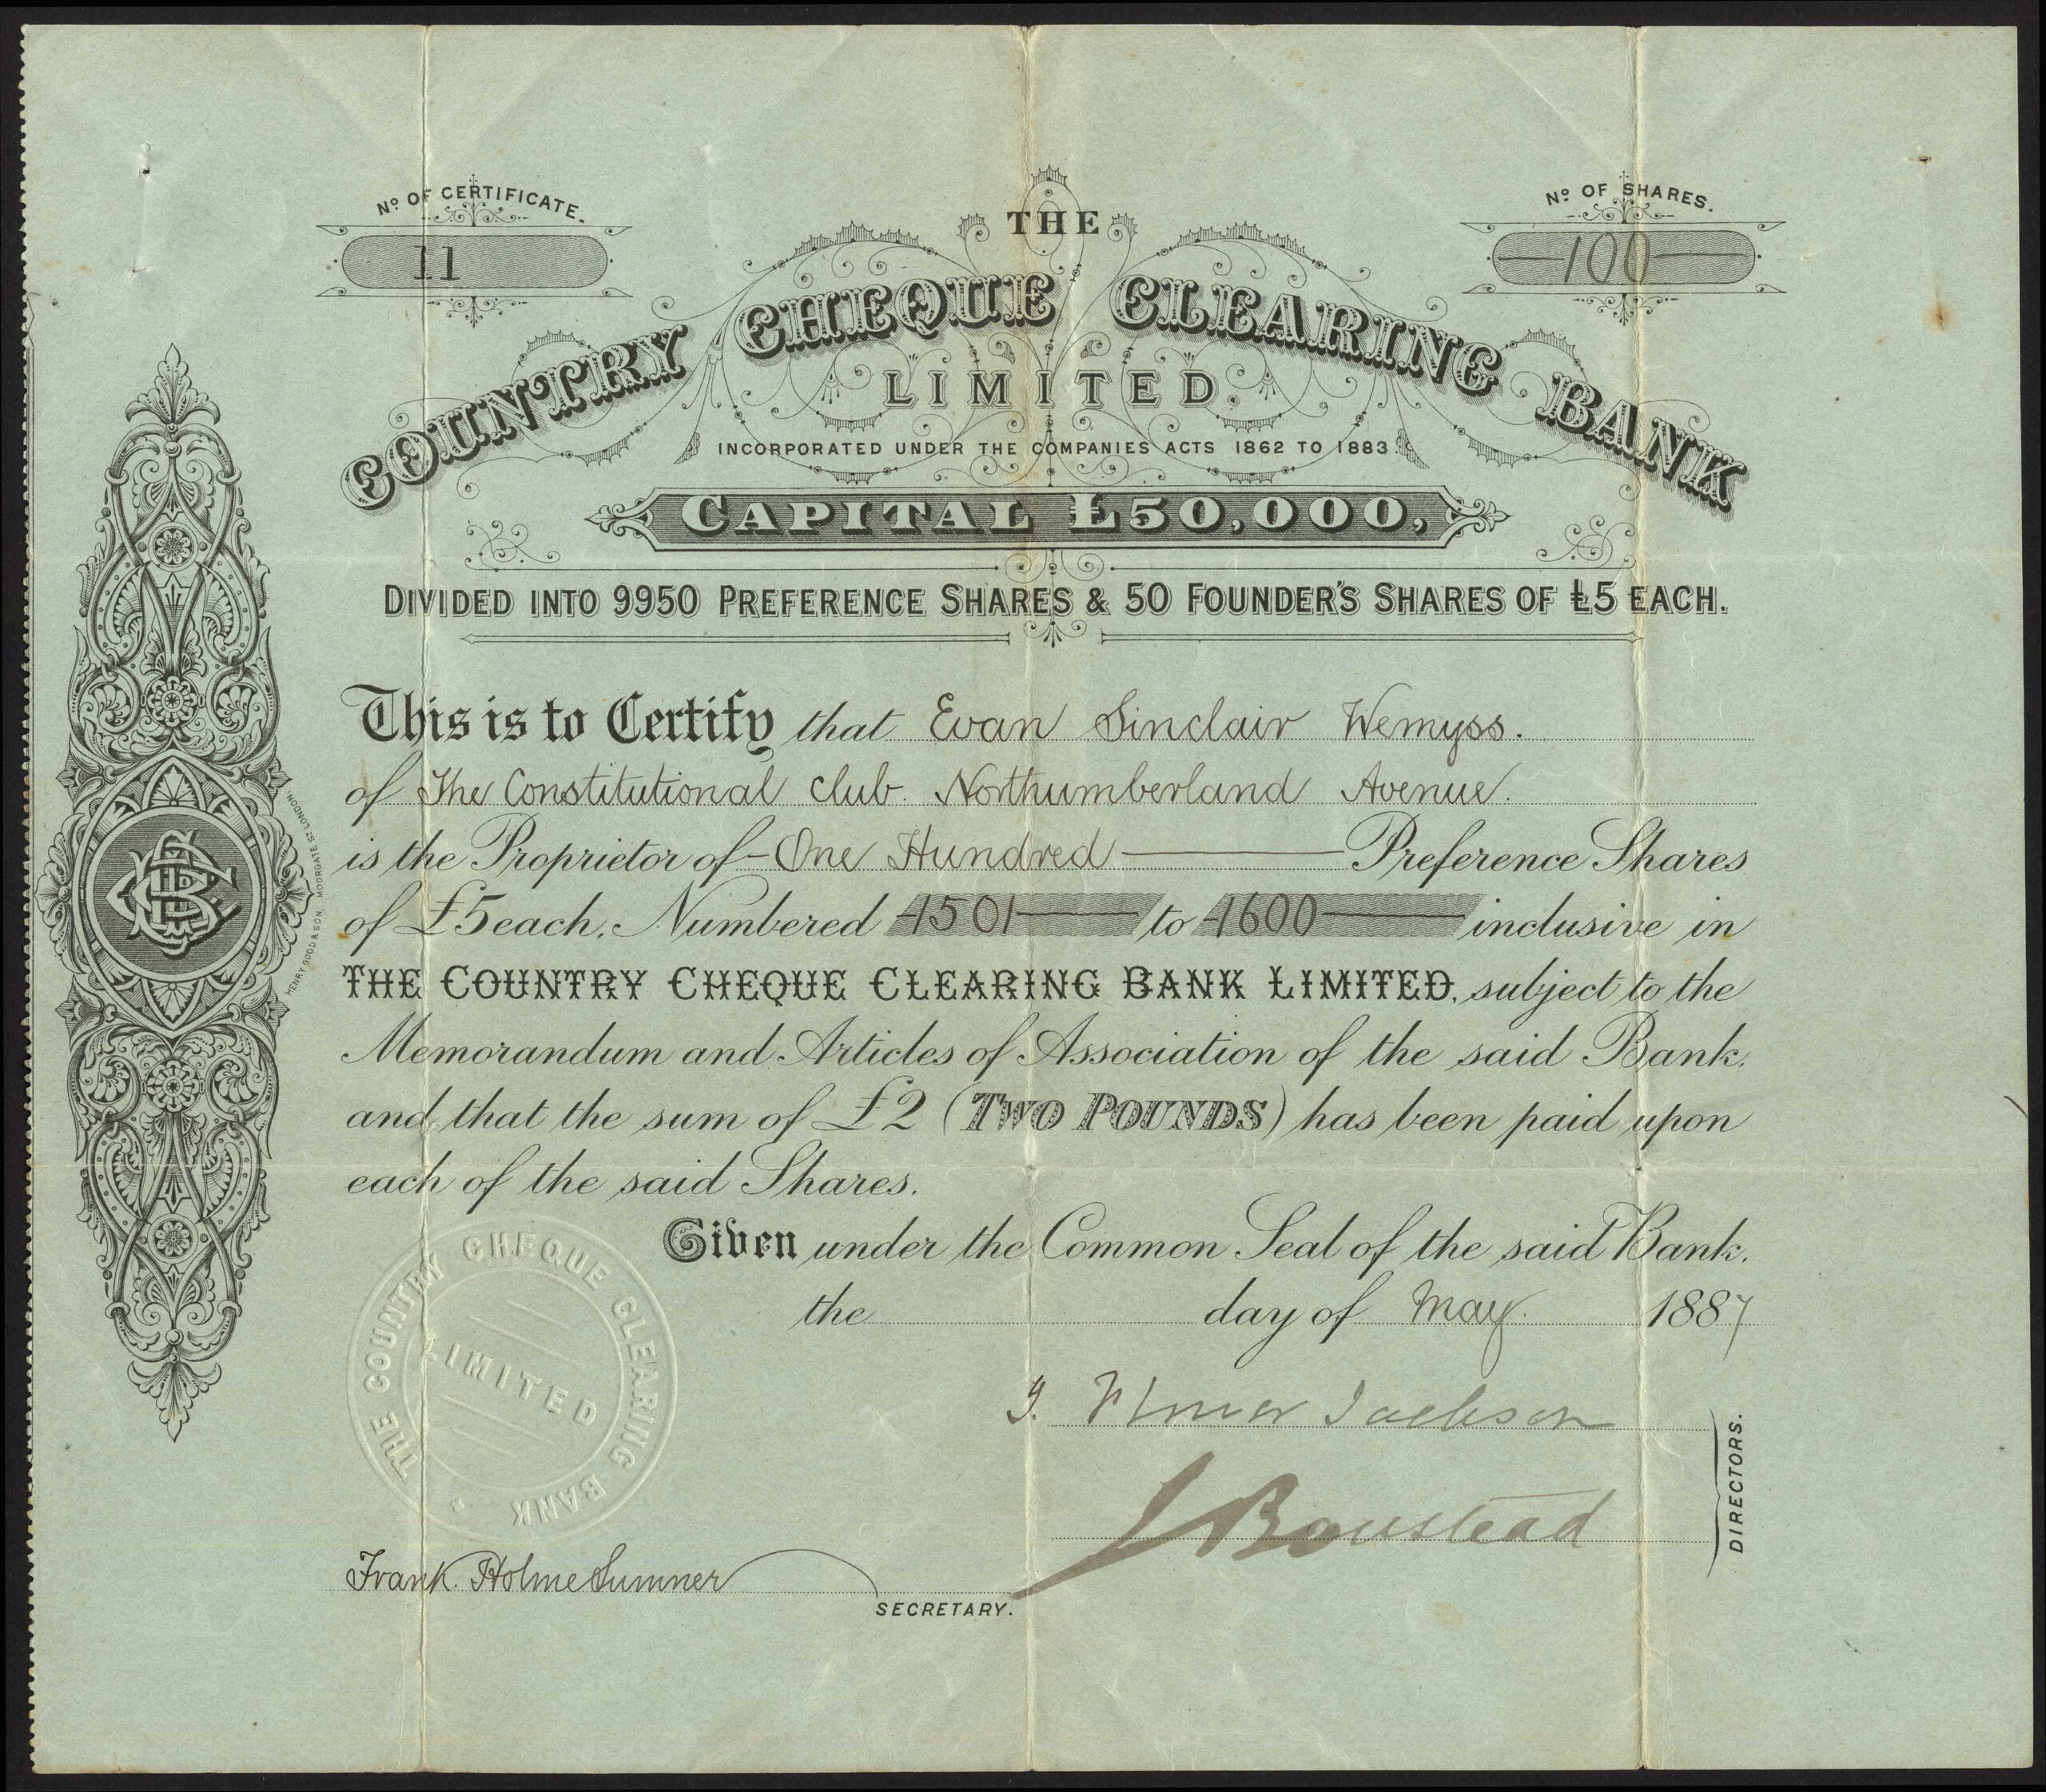 Nº OF CERTIFICATE.
11
Nº OF SHARES.
100
THE
COUNTRY CHEQUE CLEARING BANK
LIMITED.
INCORPORATED UNDER THE COMPANIES ACTS 1862 TO 1883.
CAPITAL £50,000,
DIVIDED INTO 9950 PREFERENCE SHARES & 50 FOUNDER'S SHARES OF £5 EACH.
This is to Certify that Evan Sinclair Wemyss.
of The Constitutional Club. Northumberland Avenue.
is the Proprietor of One Hundred Preference Shares
of £5 each, Numbered 1501 to 1600 inclusive in
THE COUNTRY CHEQUE CLEARING BANK LIMITED, subject to the
Memorandum and Articles of Association of the said Bank,
and that the sum of £2 (TWO POUNDS) has been paid upon
each of the said Shares.
Given under the Common Seal of the said Bank,
the day of May 1887
Jackson
J Boustead
DIRECTORS.
Frank Holme Sumner
SECRETARY.
THE COUNTRY CHEQUE CLEARING BANK
LIMITED
HENRY GOOD & SON, MOORGATE ST LONDON